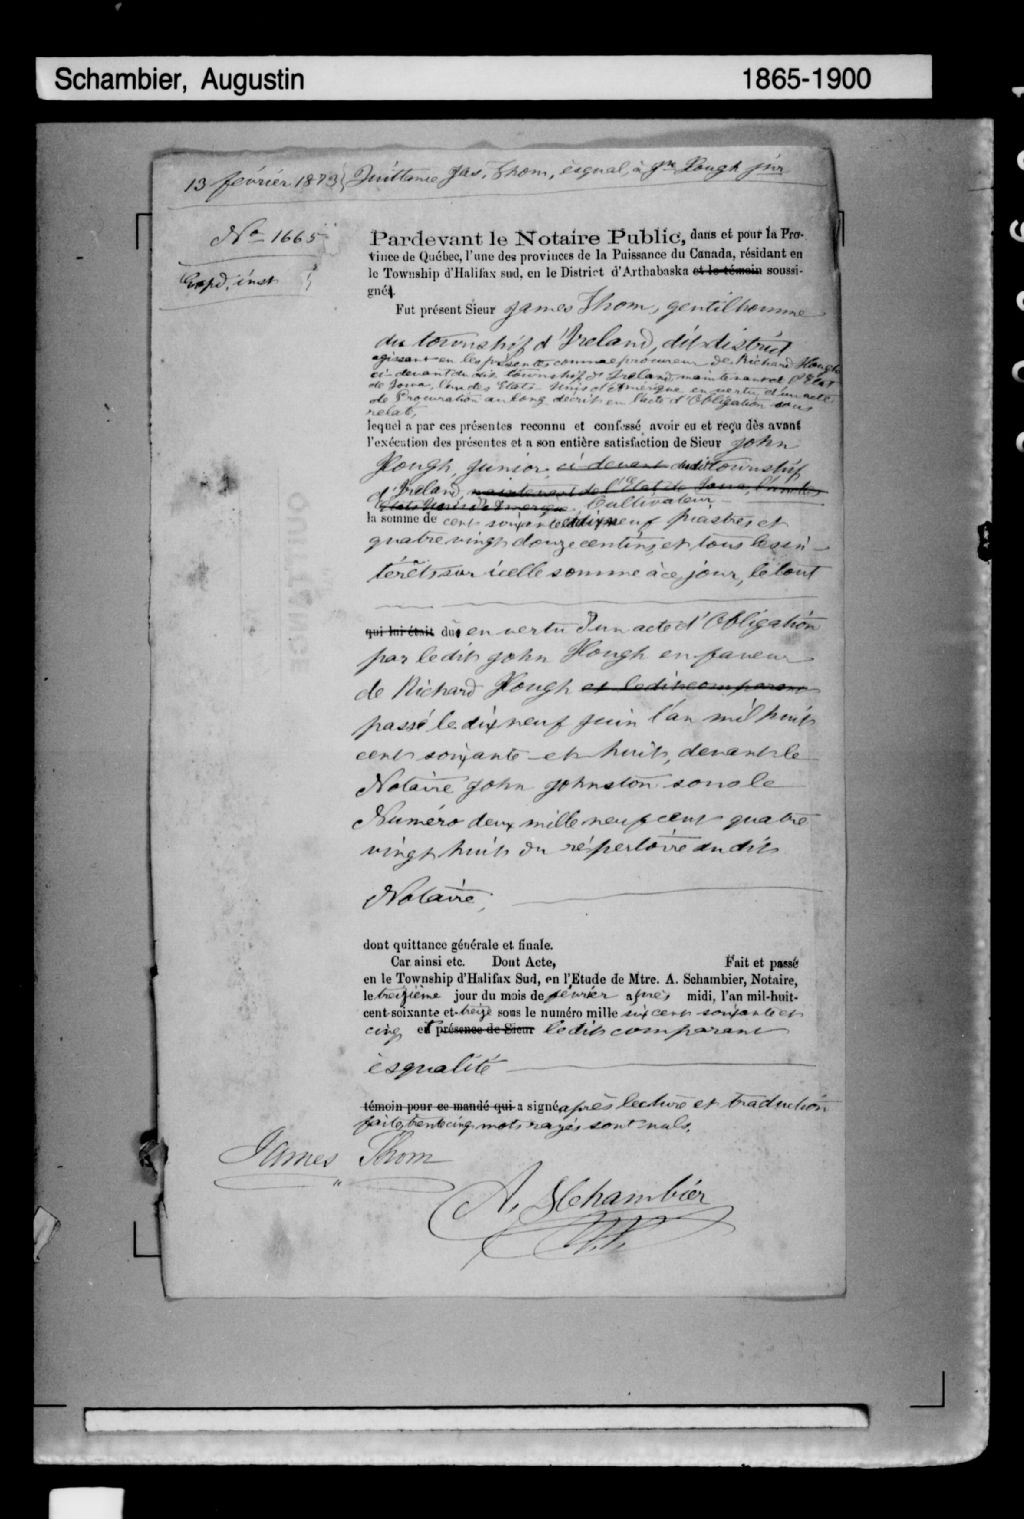 Schambier, Augustin 1865-1900
13 février 1873 Quittance Jas. Thom, èsqual, à Jn Hough jnr
No 1665
Expd. inst
Pardevant le Notaire Public, dans et pour la Pro-
vince de Québec, l'une des provinces de la Puissance du Canada, résidant en
le Township d'Halifax sud, en le District d'Arthabaska et le témoin soussi-
gné.
Fut présent Sieur James Thom, gentilhomme
du township d'Ireland, dit district
agissant en les présentes comme procureur de Richard Hough
ci-devant du dit township d'Ireland, maintenant de l'Etat
de Iowa, l'un des Etats-Unis d'Amérique en vertu d'un acte
de Procuration au long décrit en l'acte d'Obligation sous
relat,
lequel a par ces présentes reconnu et confessé avoir eu et reçu dès avant
l'exécution des présentes et a son entière satisfaction de Sieur John
Hough, Junior ci devant dudit township
d'Ireland, maintenant de l'Etat de Iowa, l'un des
Etats Unis d'Amerique, Cultivateur
la somme de cent soixante et dix neuf piastres et
quatre vingt douze centins, et tous les in-
térêts sur icelle somme à ce jour, le tout
qui lui était dû en vertu d'un acte d'Obligation
par le dit John Hough en faveur
de Richard Hough et le dit comparant
passé le dix neuf juin l'an mil huit
cent soixante et huit, devant le
Notaire John Johnston sous le
Numéro deux mille neuf cent quatre
vingt huit du répertoire du dit
Notaire,
dont quittance générale et finale.
Car ainsi etc. Dont Acte, Fait et passé
en le Township d'Halifax Sud, en l'Etude de Mtre. A. Schambier, Notaire,
le treizième jour du mois de février après midi, l'an mil-huit-
cent-soixante et-treize sous le numéro mille six cent soixante et
cinq et présence de Sieur le dit comparant
èsqualité
témoin pour ce mandé qui a signé après lecture et traduction
faite, trente cinq mots rayés sont nuls.
James Thom
A. Schambier
N.P.